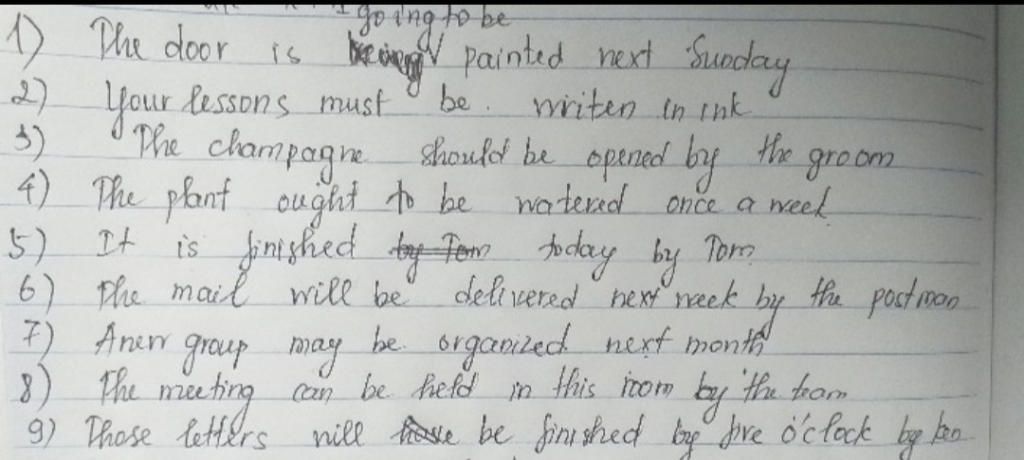 going to be
1) The door is painted next Sunday
2) Your lessons must be. writen in ink
3) The champagne should be opened by the groom
4) The plant ought to be watered once a week
5) It is finished by Tom today by Tom
6) The mail will be delivered next week by the postman
7) A new group may be organized next month
8) The meeting can be held in this room by the team
9) Those letters will have be finished by five o'clock by ken